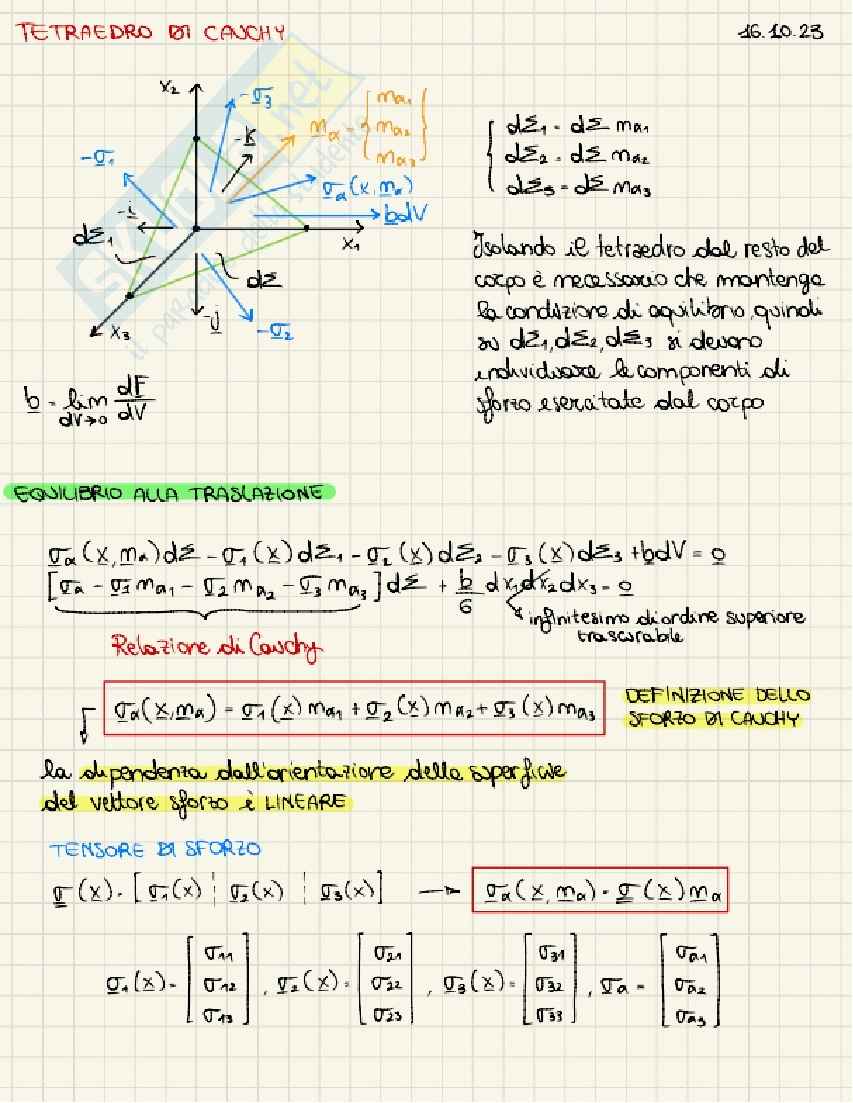 TETRAEDRO DI CAUCHY
16.10.23
x₂
-σ₃
-k
mₐ = {mₐ₁ mₐ₂ mₐ₃}
-σ₁
σₐ(x,mₐ)
-i
bdV
dΣ₁
x₁
dΣ
-j
x₃
-σ₂
dΣ₁ = dΣ mₐ₁
dΣ₂ = dΣ mₐ₂
dΣ₃ = dΣ mₐ₃
Isolando il tetraedro dal resto del
corpo è necessario che mantenga
la condizione di equilibrio, quindi
su dΣ₁, dΣ₂, dΣ₃ si devono
individuare le componenti di
sforzo esercitate dal corpo
b = lim dV→0 dF/dV
EQUILIBRIO ALLA TRASLAZIONE
σₐ(x,mₐ)dΣ - σ₁(x)dΣ₁ - σ₂(x)dΣ₂ - σ₃(x)dΣ₃ + bdV = 0
[σₐ - σ₁mₐ₁ - σ₂mₐ₂ - σ₃mₐ₃]dΣ + b/6 dx₁dx₂dx₃ = 0
infinitesimo di ordine superiore
trascurabile
Relazione di Cauchy
σₐ(x,mₐ) = σ₁(x)mₐ₁ + σ₂(x)mₐ₂ + σ₃(x)mₐ₃
DEFINIZIONE DELLO
SFORZO DI CAUCHY
la dipendenza dall'orientazione della superficie
del vettore sforzo è LINEARE
TENSORE DI SFORZO
σ(x) = [σ₁(x) ¦ σ₂(x) ¦ σ₃(x)] → σₐ(x,mₐ) = σ(x)mₐ
σ₁(x) = [σ₁₁ σ₁₂ σ₁₃], σ₂(x) = [σ₂₁ σ₂₂ σ₂₃], σ₃(x) = [σ₃₁ σ₃₂ σ₃₃], σₐ = [σₐ₁ σₐ₂ σₐ₃]